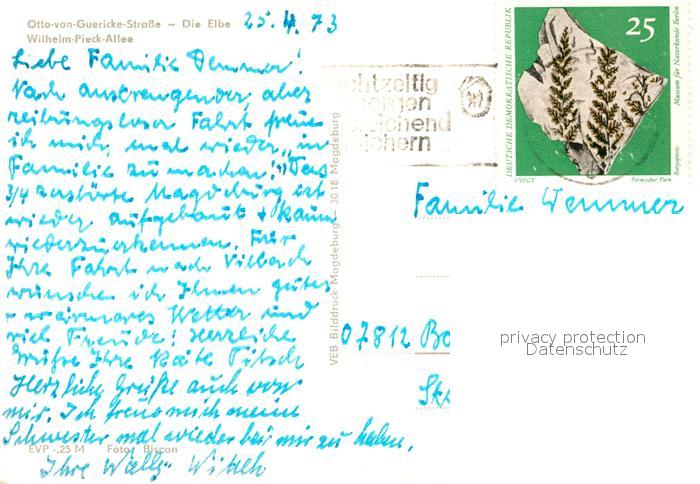 Otto-von-Guericke-Straße – Die Elbe
Wilhelm-Pieck-Allee
25.4.73
Liebe Familie Wemmer!
Nach anstrengender, aber
reibungsloser Fahrt freue
ich mich, mal wieder „in
Familie zu machen". Das
3/4 zerstörte Magdeburg ist
wieder aufgebaut + kaum
wiederzuerkennen. Für
Ihre Fahrt nach Vilbach
wünsche ich Ihnen gutes
+ wärmeres Wetter und
viel Freude! Herzliche
Grüße Ihre Käte
Herzliche Grüße auch von
mir. Ich freue mich meine
Schwester mal wieder bei mir zu haben.
Ihre Wally
EVP -,25 M Foto: Biscan
VEB Bilddruck Magdeburg 3018 Magdeburg
chtzeitig
orgen
ichend
ichern
DEUTSCHE DEMOKRATISCHE REPUBLIK
25
Museum für Naturkunde Berlin
VOIGT
Permischer Farn
Familie Wemmer
07812 Bo
privacy protection
Datenschutz